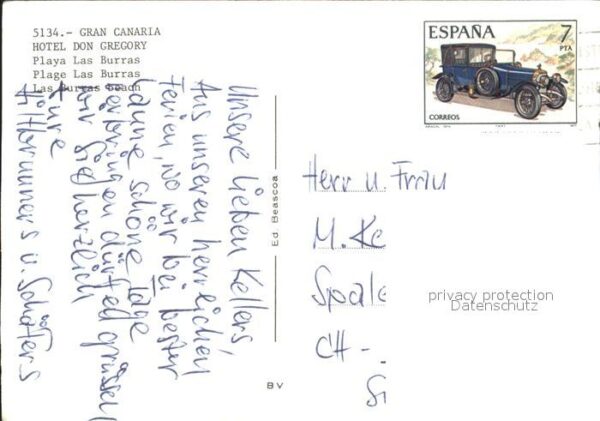 5134.- GRAN CANARIA
HOTEL DON GREGORY
Playa Las Burras
Plage Las Burras
Las Burras Beach
ESPAÑA 7
PTA
CORREOS
Unsere lieben Kellers,
Aus unseren herrlichen
Ferien, wo wir bei bester
Laune schöne Tage
verbringen dürfen grüssen
wir Sie herzlich
Eure
u. Schäfers
Ed. Beascoa
BV
Herr u. Frau
M. Ke
Spale
CH -
privacy protection
Datenschutz